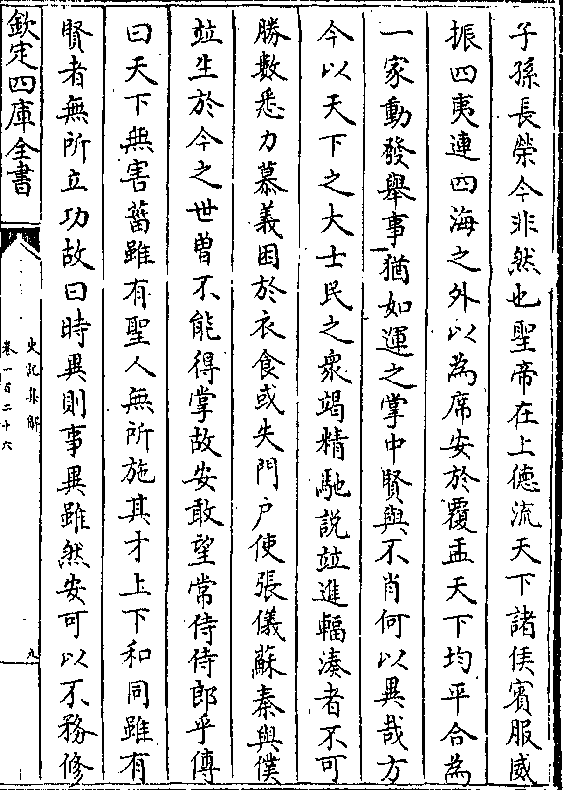 子孫長榮今非然也聖帝在上德流天下諸侯賓服威
振四夷連四海之外以為席安於覆盂天下均平合為
一家動發舉事猶如運之掌中賢與不肖何以異哉方
今以天下之大士民之衆竭精馳說竝進輻湊者不可
勝數悉力慕義困於衣食或失門户使張儀蘇秦與僕
竝生於今之世曽不能得掌故安敢望常侍侍郎乎傳
曰天下無害菑雖有聖人無所施其才上下和同雖有
賢者無所立功故曰時異則事異雖然安可以不務修
欽定四庫全書
史記集解
卷一百二十六
九